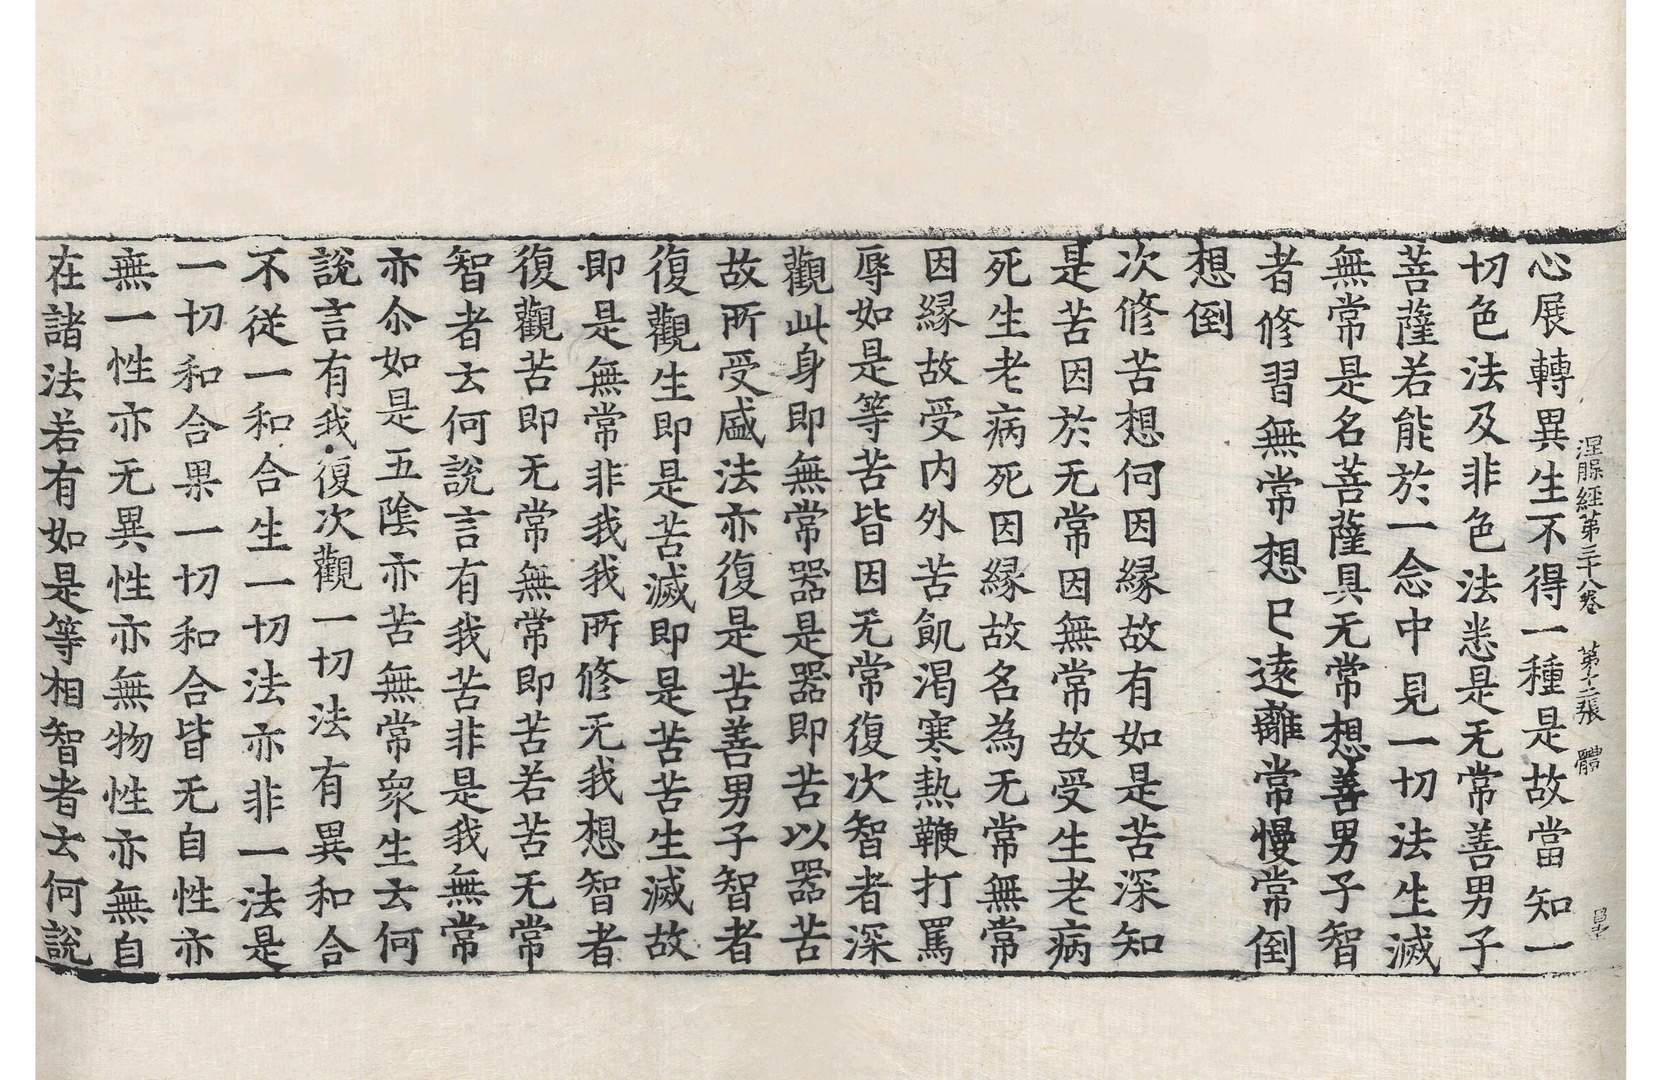 涅槃經第三十八卷 第十二張 體
心展轉異生不得一種是故當知一
切色法及非色法悉是无常善男子
菩薩若能於一念中見一切法生滅
無常是名菩薩具无常想善男子智
者修習無常想已遠離常慢常倒
想倒
次修苦想何因縁故有如是苦深知
是苦因於无常因無常故受生老病
死生老病死因縁故名為无常無常
因縁故受内外苦飢渴寒熱鞭打罵
辱如是等苦皆因无常復次智者深
觀此身即無常器是器即苦以器苦
故所受盛法亦復是苦善男子智者
復觀生即是苦滅即是苦苦生滅故
即是無常非我我所修无我想智者
復觀苦即无常無常即苦若苦无常
智者云何說言有我苦非是我無常
亦尒如是五陰亦苦無常衆生云何
說言有我復次觀一切法有異和合
不從一和合生一切法亦非一法是
一切和合果一切和合皆无自性亦
無一性亦无異性亦無物性亦無自
在諸法若有如是等相智者云何說